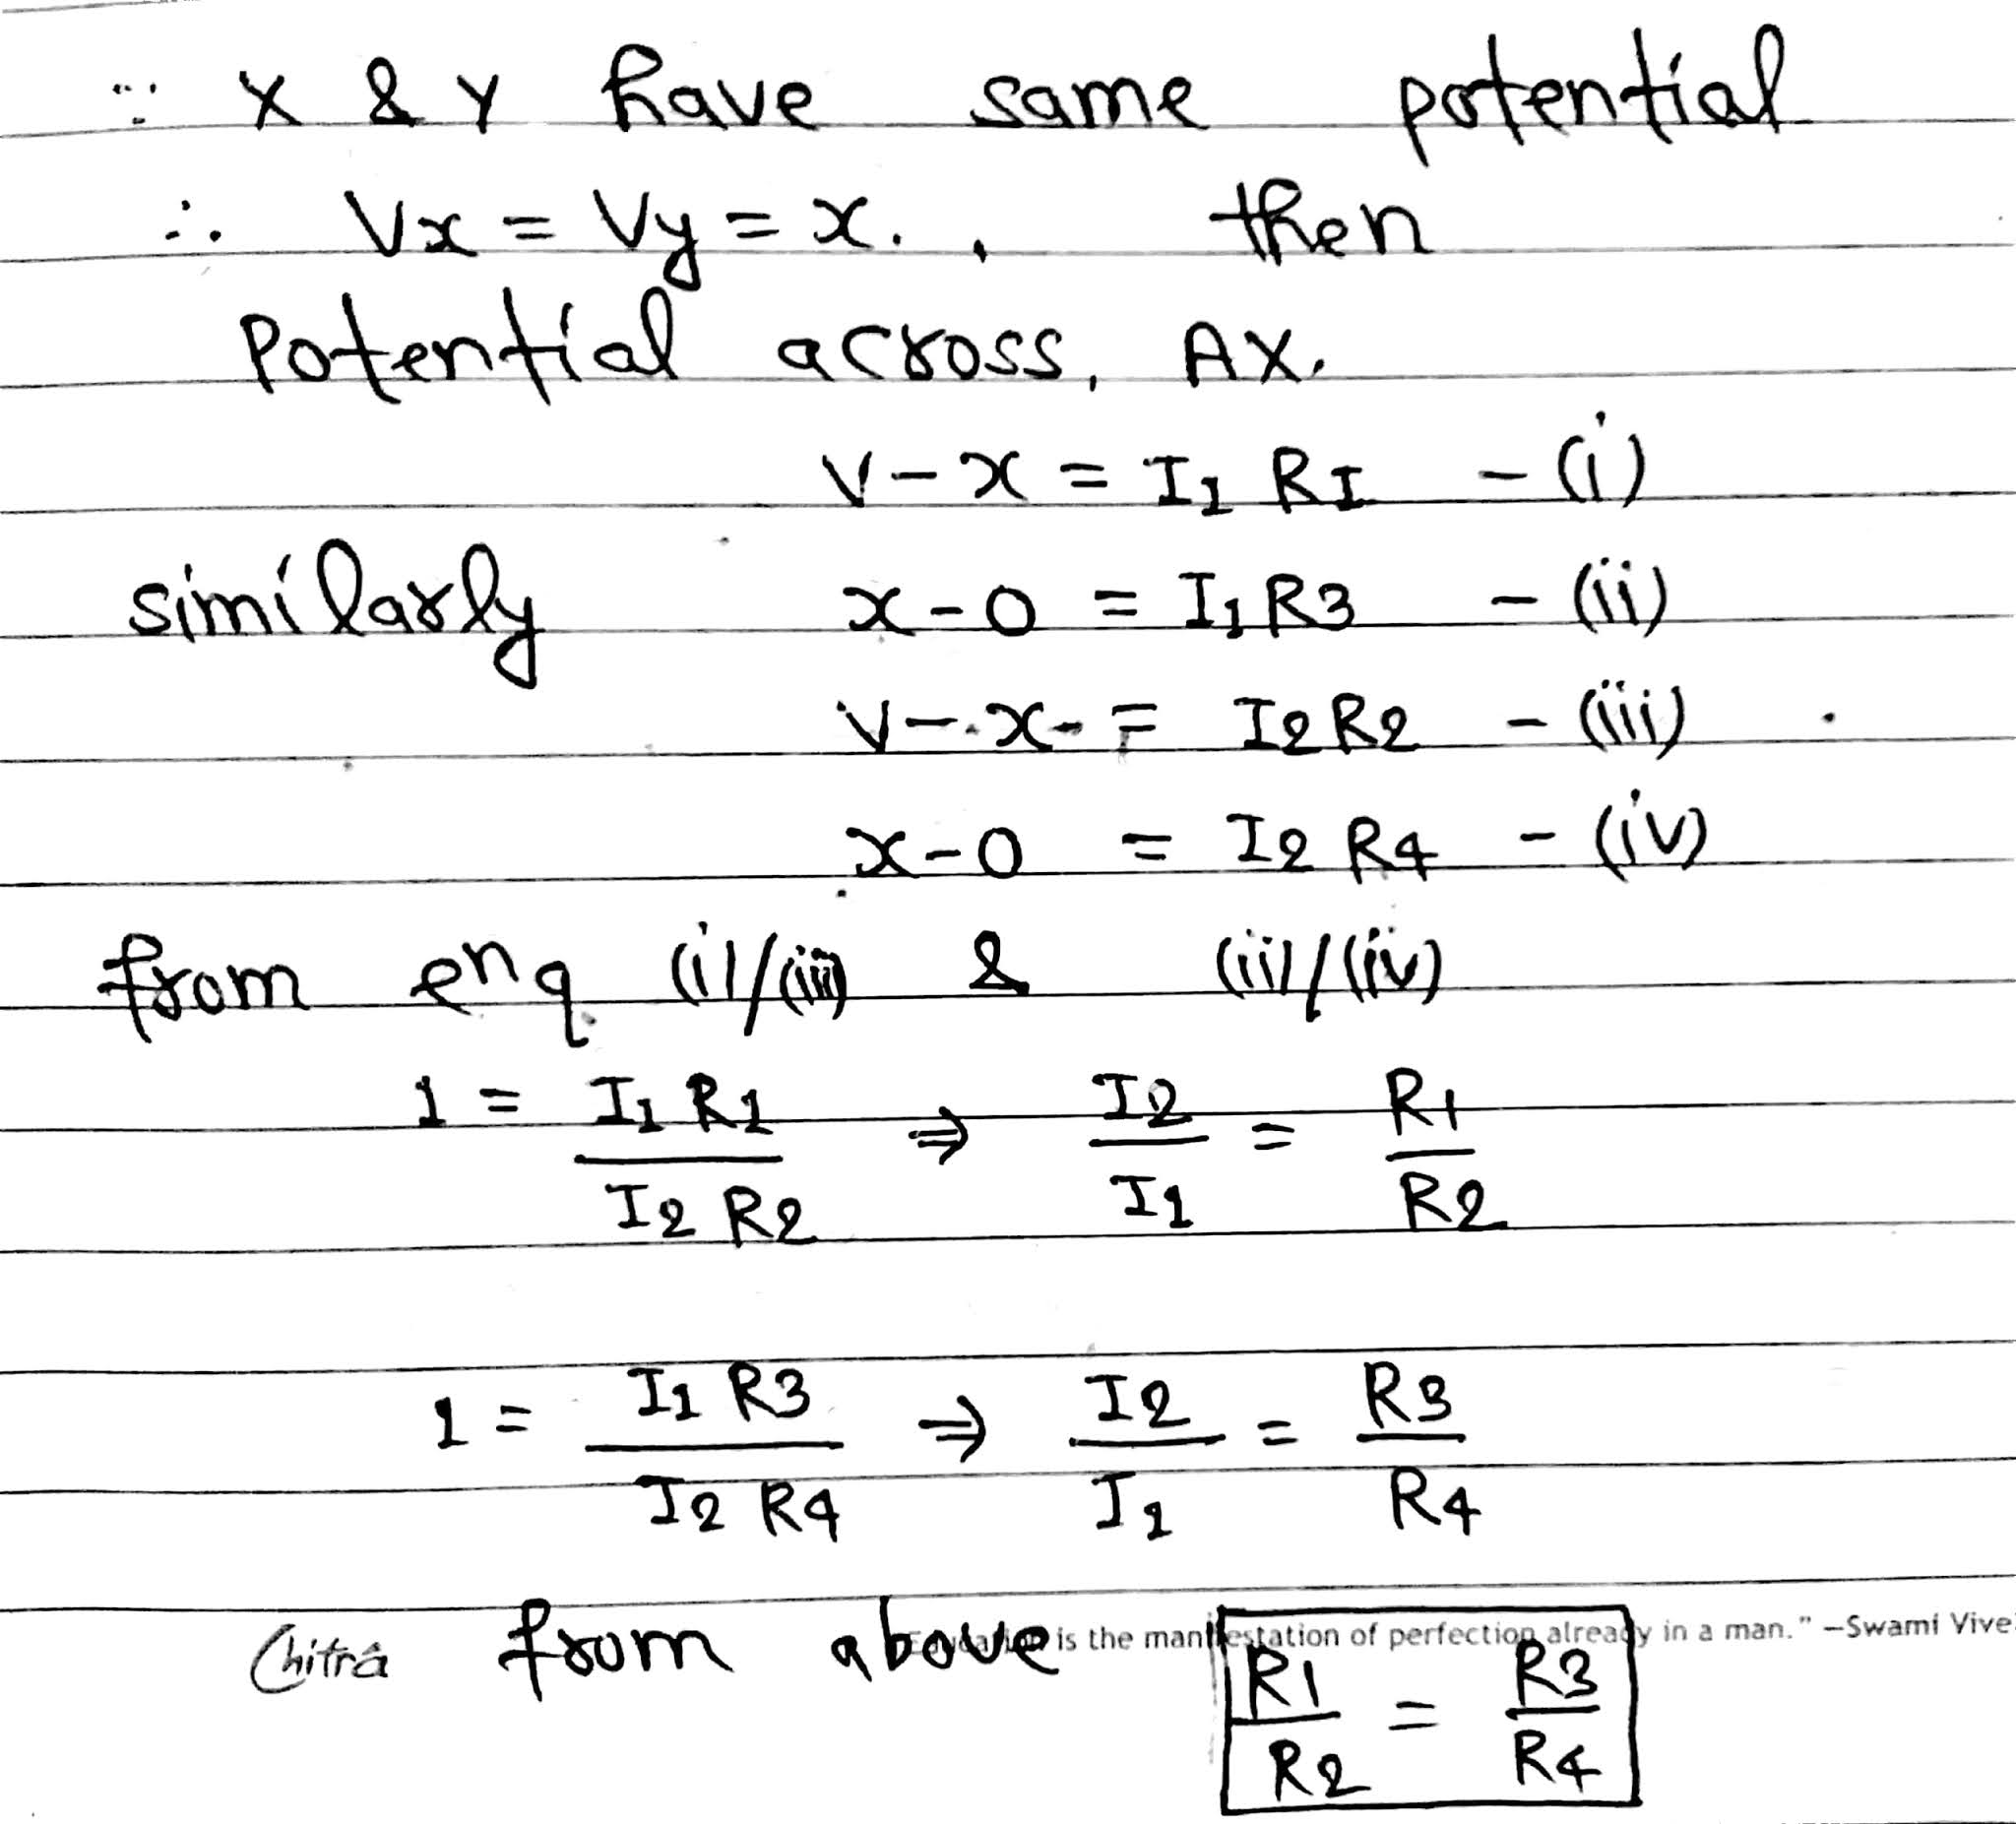 ∵ X & Y have same potential
∴ Vx = Vy = x. , then
Potential across, AX.
V - x = I1 RI - (i)
similarly x - 0 = I1 R3 - (ii)
V - x - = I2 R2 - (iii)
x - 0 = I2 R4 - (iv)
from enq (i)/(iii) & (ii)/(iv)
1 = I1 R1 / I2 R2 ⇒ I2 / I1 = R1 / R2
1 = I1 R3 / I2 R4 ⇒ I2 / I1 = R3 / R4
Chitrâ "Education is the manifestation of perfection already in a man." —Swami Vive
from above R1 / R2 = R3 / R4